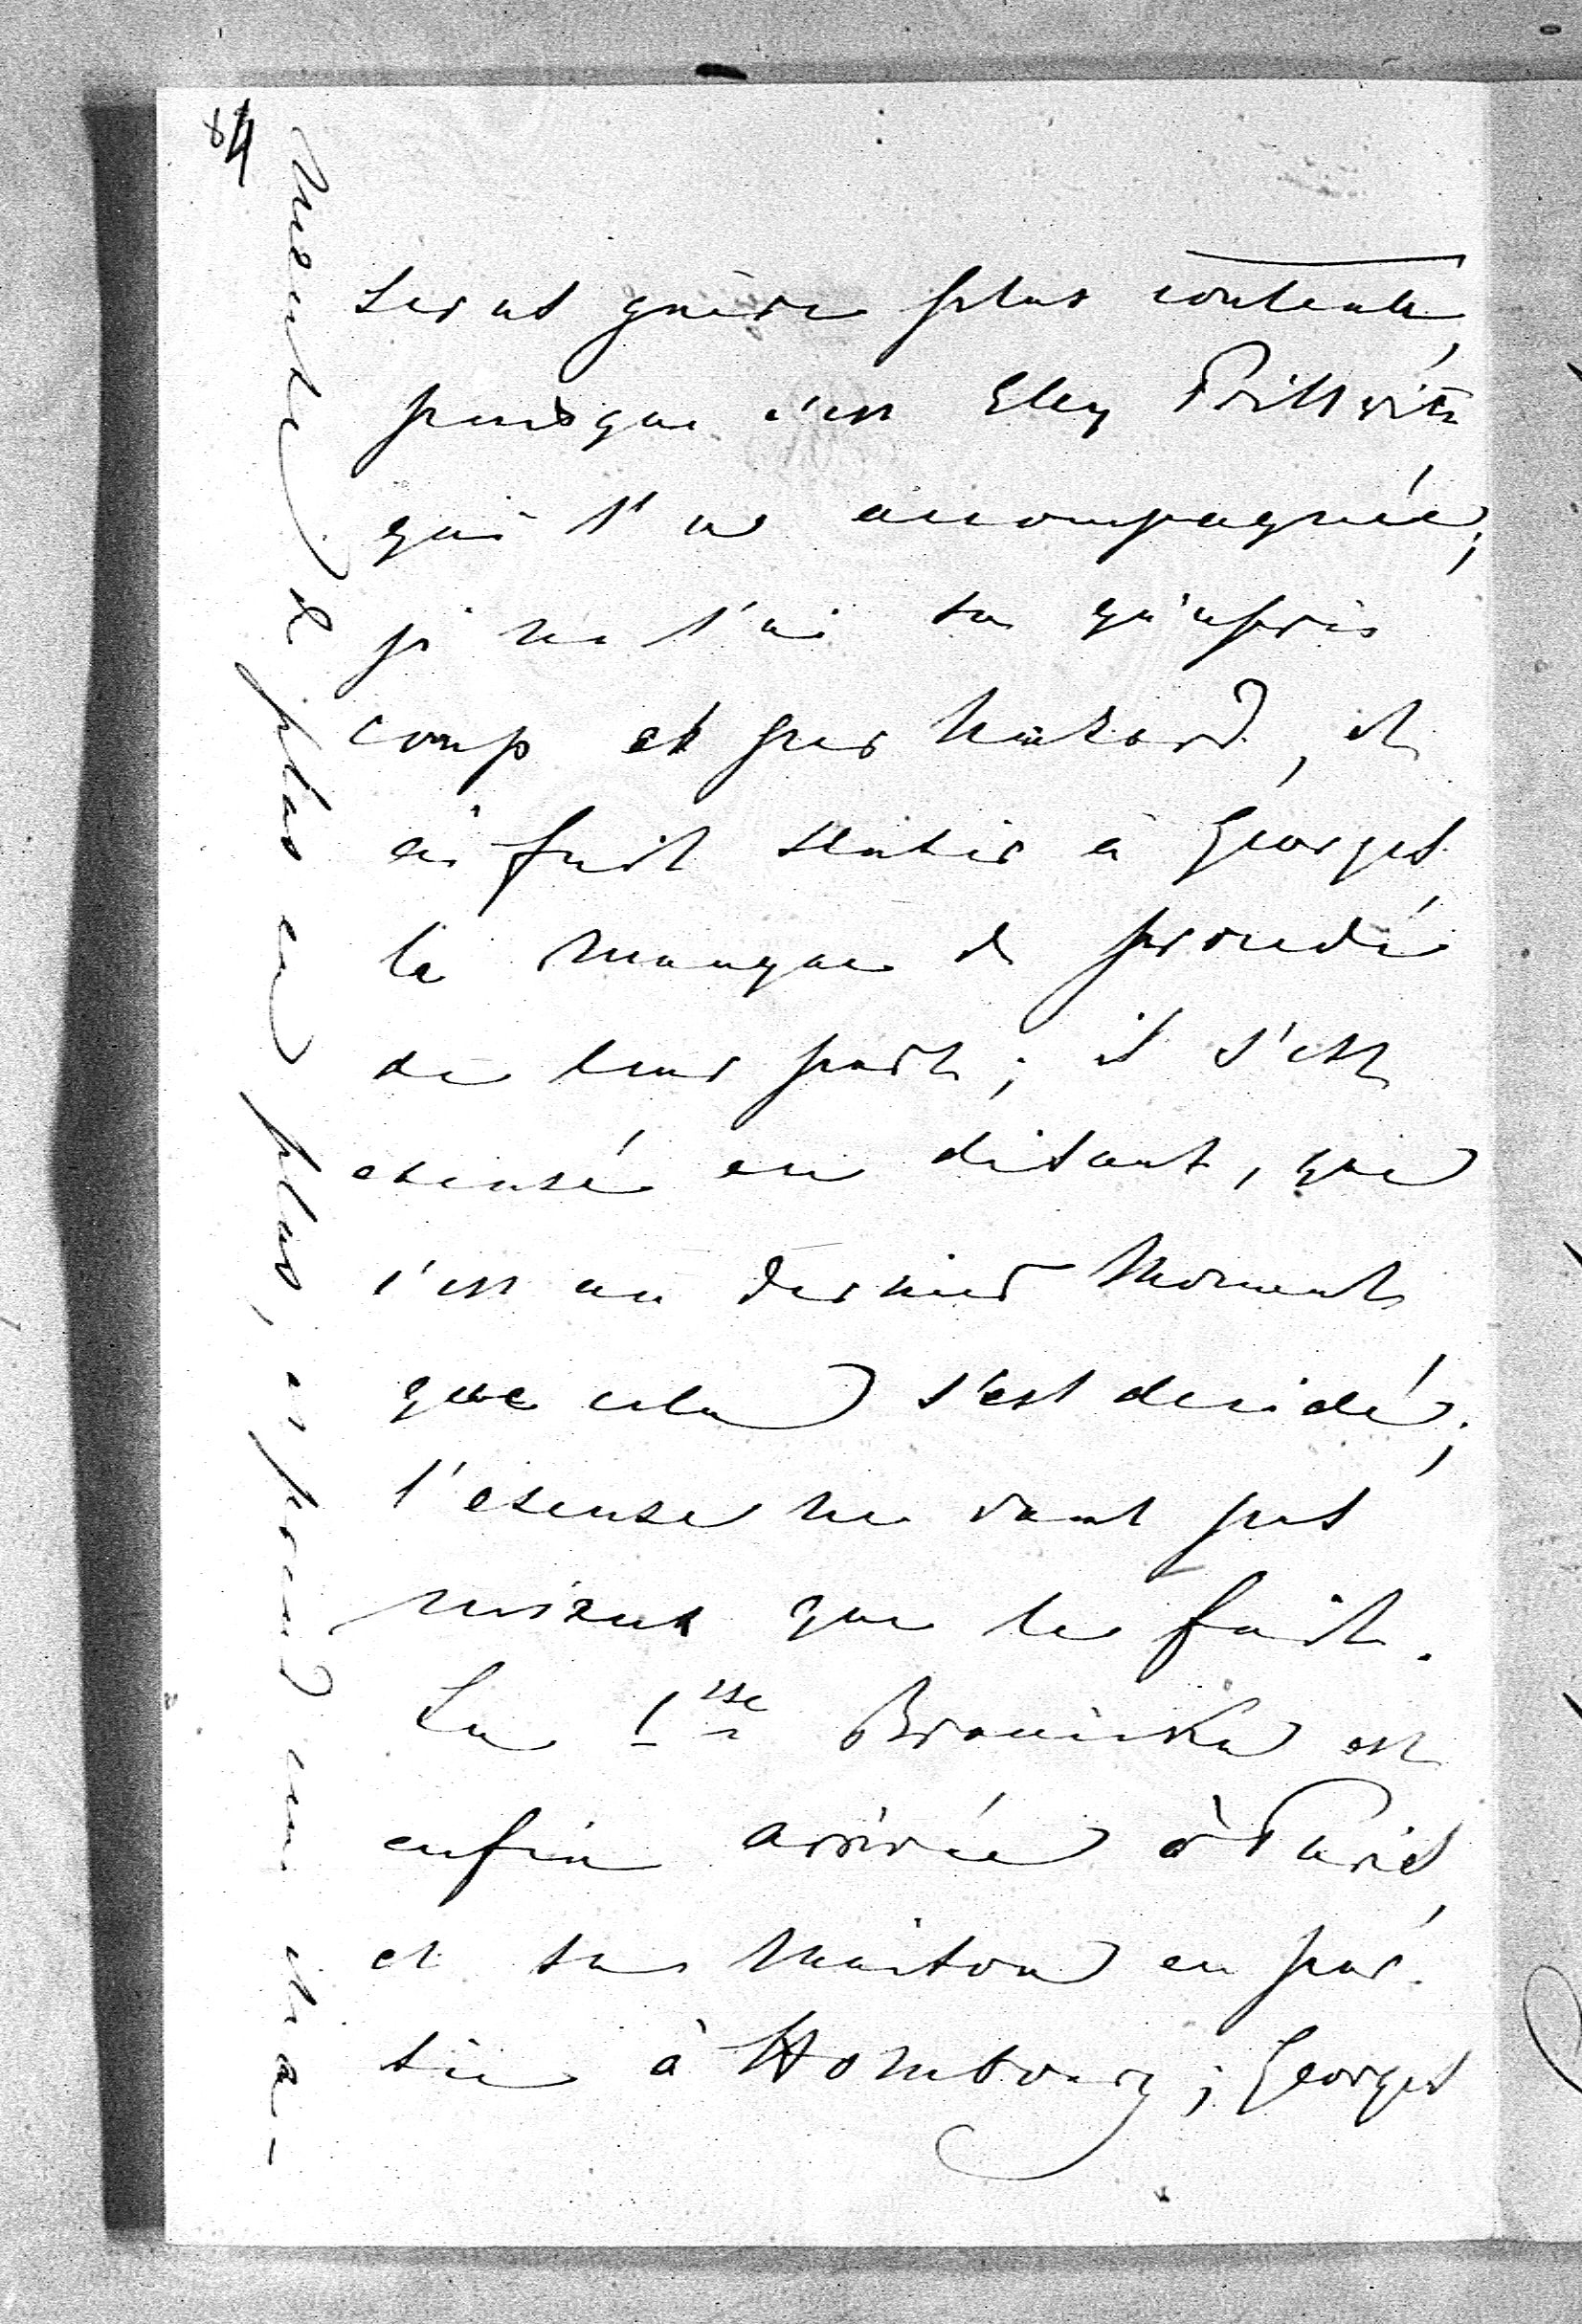 84
seras guère plus contente,
puisque c'est Elly Prittwitz
qui l'a accompagnée;
je ne l'ai su qu'après
coup et par hazard, et
ai fait sentir à Georges,
le manque de procédé
de leur part; il s'est
excusé en disant, que
c'est au dernier moment
que cela s'est decidé;
l'excuse ne vaut pas
mieux que le fait.
La Csse Branicka est
enfin arrivée à Paris,
et sa maison en par-
tie à Hombourg; Georges
de plus en plus,